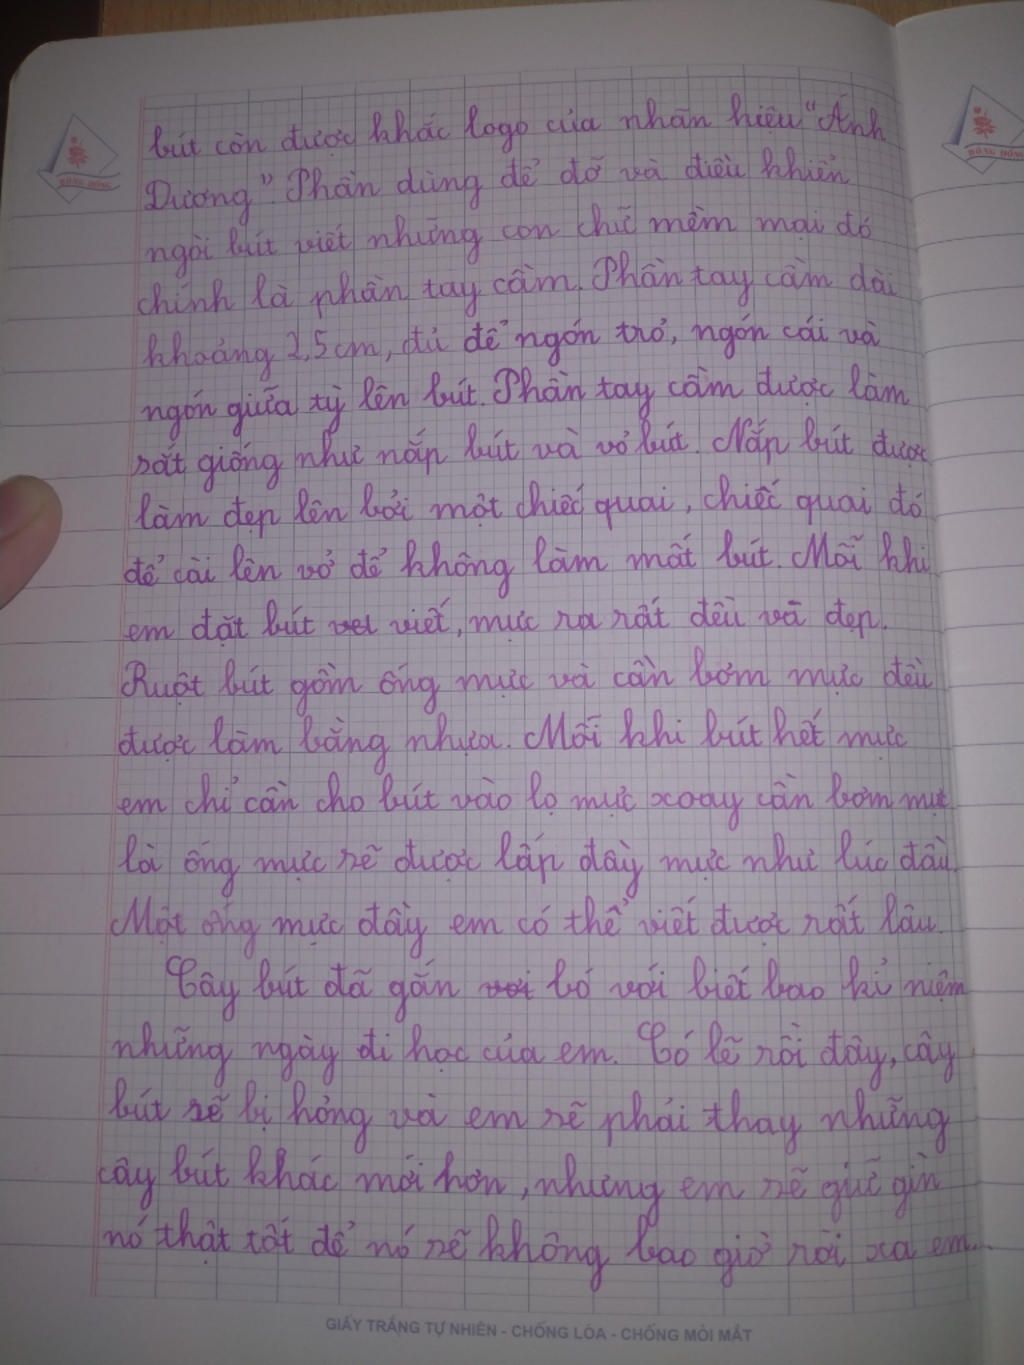 bút còn được khắc logo của nhãn hiệu "Ánh
Dương". Phần dùng để đỡ và điều khiển
ngòi bút viết những con chữ mềm mại đó
chính là phần tay cầm. Phần tay cầm dài
khoảng 2,5cm, đủ để ngón trỏ, ngón cái và
ngón giữa tỳ lên bút. Phần tay cầm được làm
rất giống như nắp bút và vỏ bút. Nắp bút được
làm đẹp lên bởi một chiếc quai, chiếc quai đó
để cài lên vỏ để không làm mất bút. Mỗi khi
em đặt bút viết, mực ra rất đều và đẹp.
Ruột bút gồm ống mực và cần bơm mực đều
được làm bằng nhựa. Mỗi khi bút hết mực
em chỉ cần cho bút vào lọ mực xoay cần bơm mực
là ống mực sẽ được lấp đầy mực như lúc đầu.
Một ống mực đầy em có thể viết được rất lâu.
Cây bút đã gắn bó với biết bao kỉ niệm
những ngày đi học của em. Có lẽ rồi đây, cây
bút sẽ bị hỏng và em sẽ phải thay những
cây bút khác mới hơn, nhưng em sẽ giữ gìn
nó thật tốt để nó sẽ không bao giờ rời xa em.
GIẤY TRẮNG TỰ NHIÊN - CHỐNG LÓA - CHỐNG MỎI MẮT
HỒNG HÀ